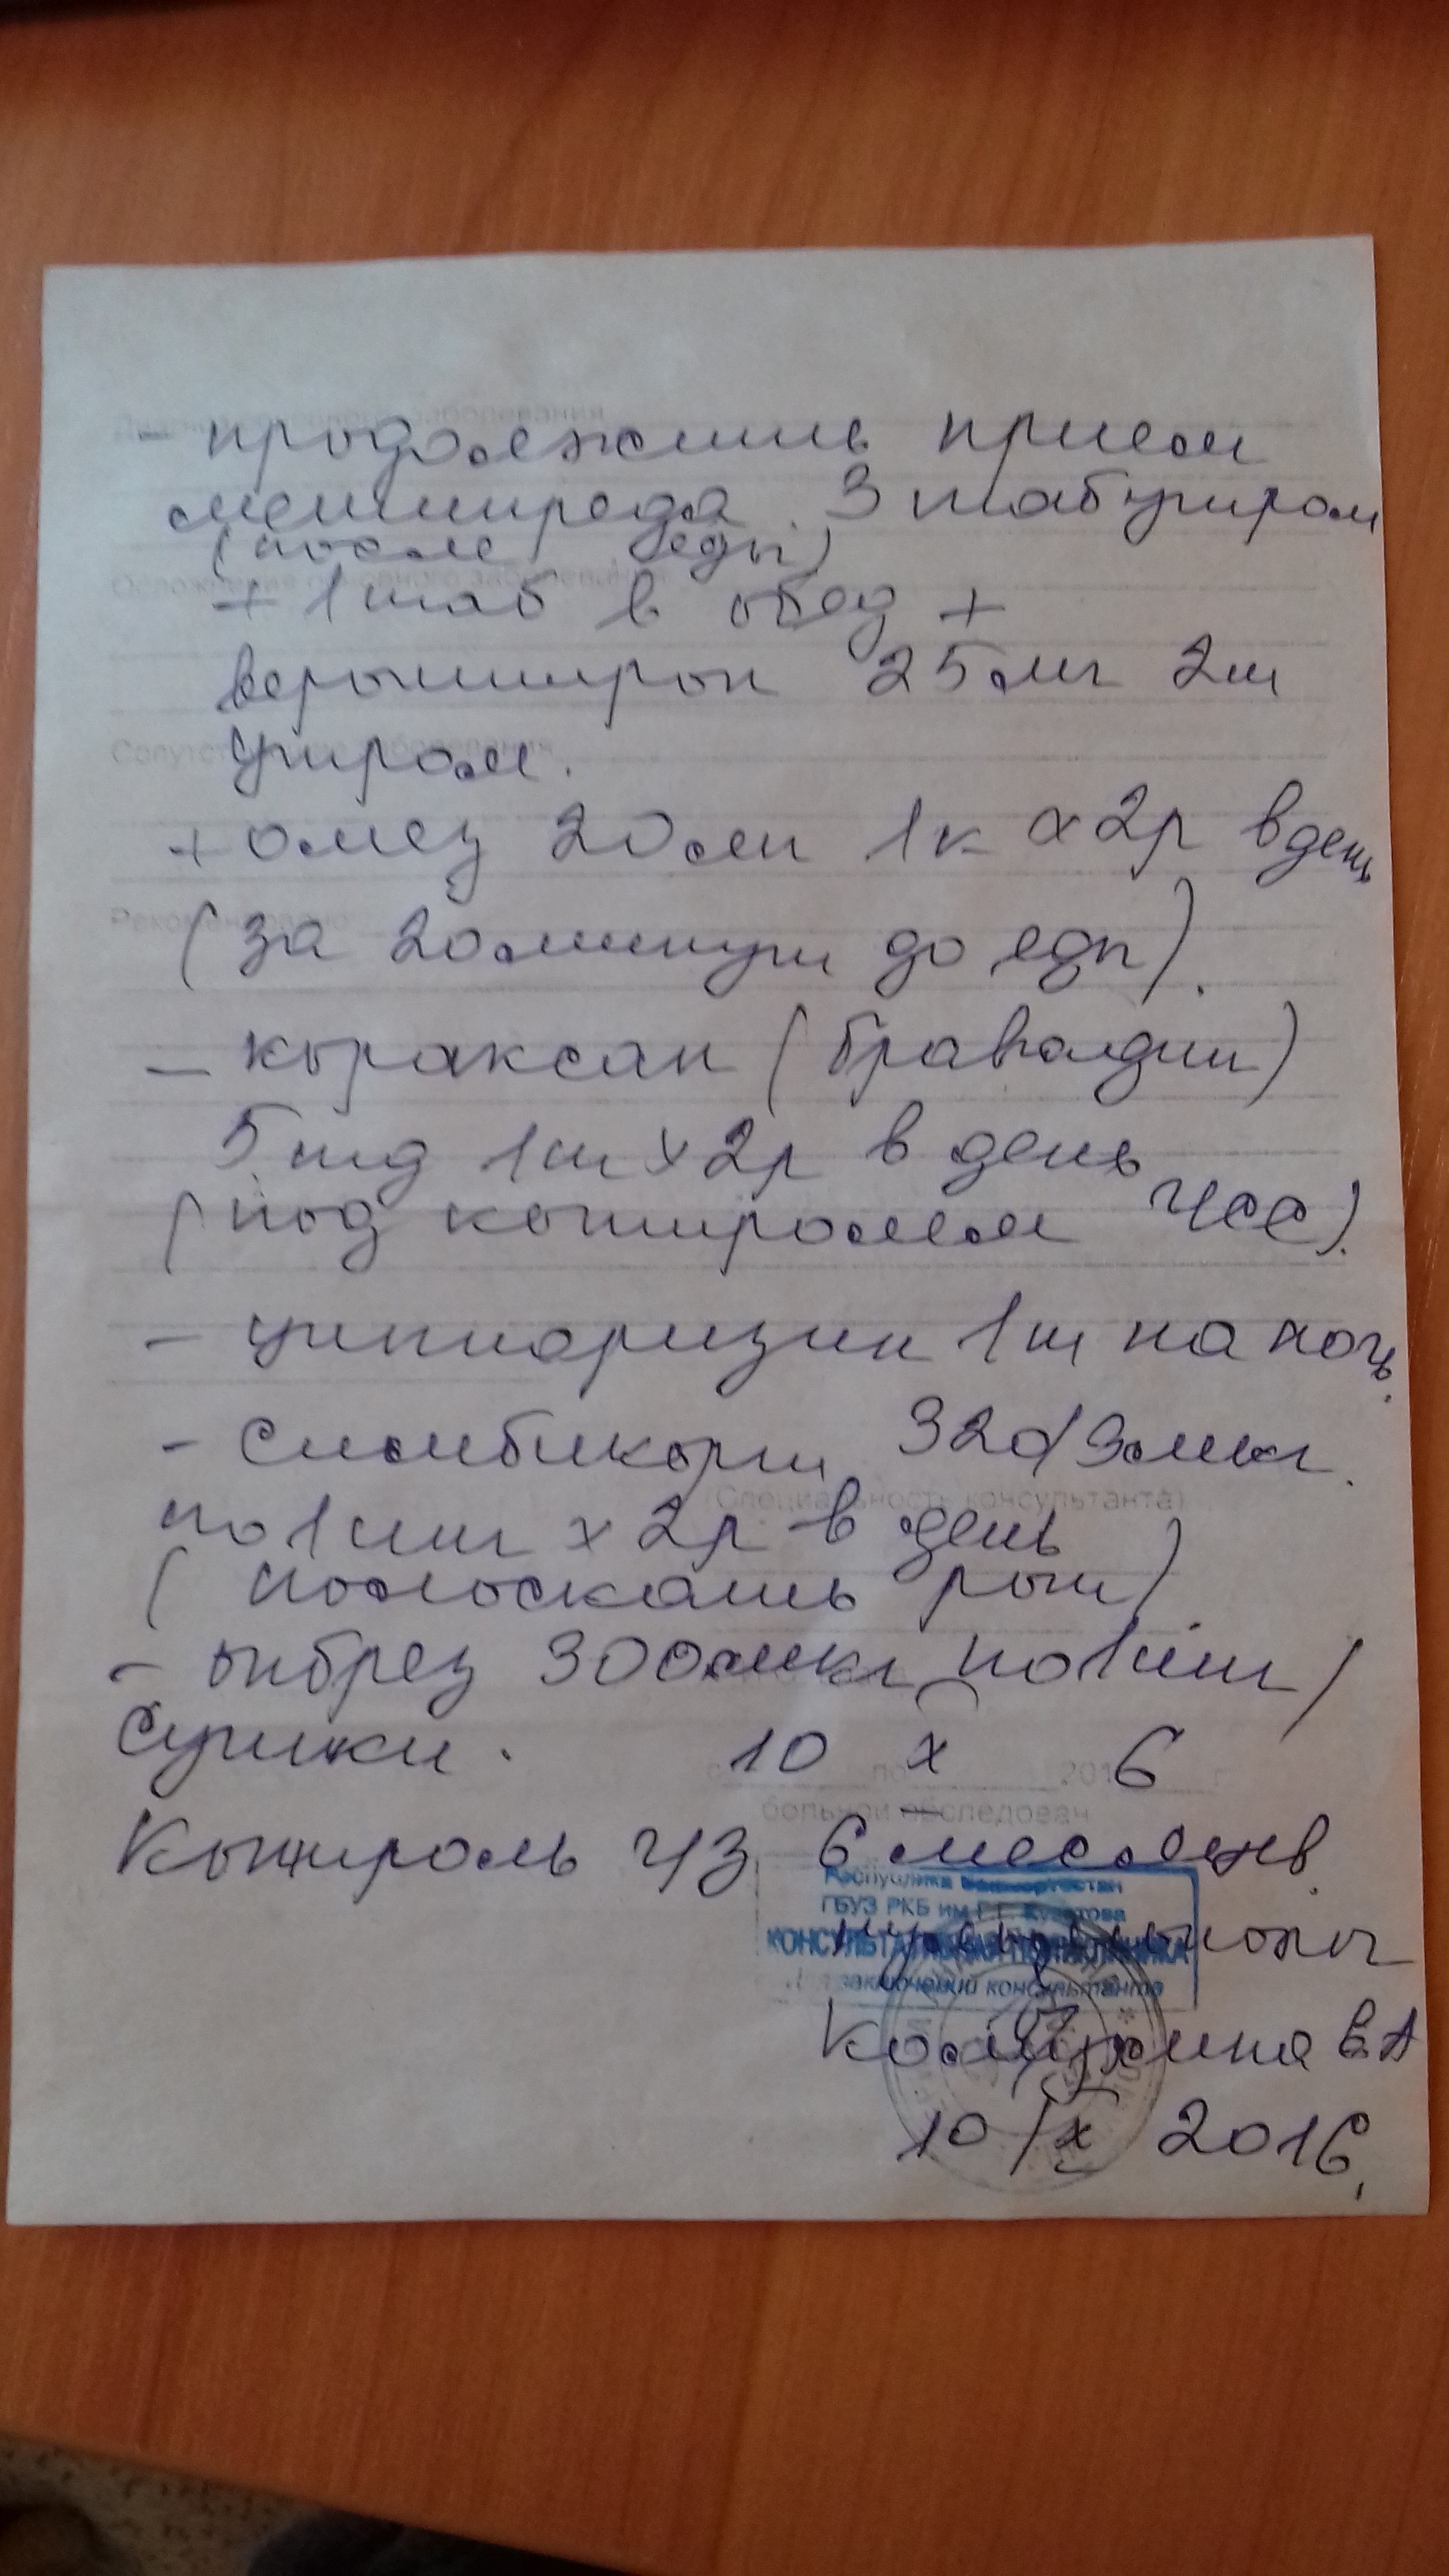 - продолжить прием
метипреда 3 таб утром
(после еды)
+ 1 таб в обед +
верошпирон 25 мг 2т
утром.
+ омез 20 мг 1к х 2р в день
(за 20 минут до еды).
- кораксан (бравадин)
5 мг 1т х 2р в день
(под контролем ЧСС).
- циннаризин 1т на ночь.
- симбикорт 320/9 мкг.
по 1 инг х 2р в день
(полоскать рот)
- онбрез 300 мкг по 1 инг/
сутки. 10 X 6
Контроль ч/з 6 месяцев.
Республика Башкортостан
ГБУЗ РКБ им Г.Г. Куватова
КОНСУЛЬТАТИВНАЯ ПОЛИКЛИНИКА
заключений консультанта
В.А
10/X 2016,
Диагноз основного заболевания
Осложнение основного заболевания
Сопутствующие заболевания
Рекомендовано
(Специальность консультанта)
больной обследован